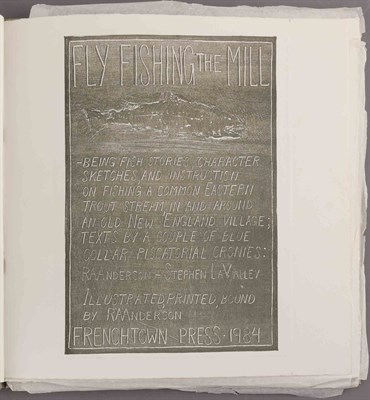 FLY FISHING THE MILL
-BEING FISH STORIES, CHARACTER
SKETCHES, AND INSTRUCTION
ON FISHING A COMMON EASTERN
TROUT STREAM IN AND AROUND
AN OLD NEW ENGLAND VILLAGE;
TEXTS BY A COUPLE OF BLUE
COLLAR PISCATORIAL CRONIES:
RAANDERSON - STEPHEN LAVALLEY
ILLUSTRATED, PRINTED, BOUND
BY RAANDERSON
FRENCHTOWN PRESS · 1984